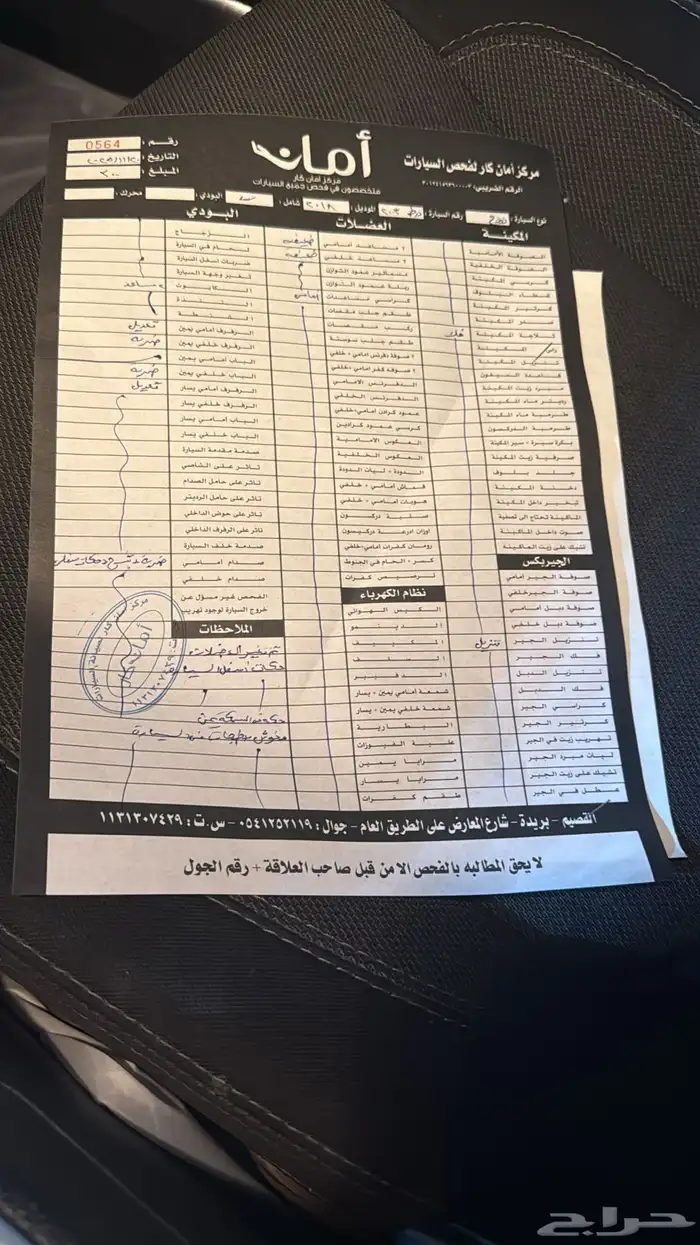 أمان
مركز أمان كار
متخصصون في فحص جميع السيارات
مركز أمان كار لفحص السيارات
رقم :
0564
التاريخ :
المبلغ :
٣٠٠
نوع السيارة :
رقم السيارة :
الموديل :
٢٠١٨
شامل :
البودي :
محرك :
المكينة
الصوفة الأمامية
الصوفة الخلفية
كرسي المكينة
غطاء البلوف
كرتير المكينة
صدر المكينة
ثلاجة المكينة
راس المكينة
تنزيل المكينة
قاعدة السيفون
مبرد زيت المكينة
رديتر ماء المكينة
طرمبة ماء المكينة
طرمبة الدركسون
بكرة سيرة - سير المكينة
صرفية زيت المكينة
جلد بلوف
دخنة المكينة
تبخير داخل المكينة
المكينة تحتاج الى تصفية
صوت داخل المكينة
تشيك على زيت المكينة
الجيربكس
صوفة الجير امامي
صوفة الجير خلفي
صوفة دبل امامي
صوفة دبل خلفي
تنزيل الجير
فك الجير
تنزيل الدبل
فك الدبل
كراسي الجير
كرتير الجير
تهريب زيت في الجير
ليات مبرد الجير
تشيك على زيت الجير
عطل في الجير
العضلات
٢ مساعد امامي
٢ مساعد خلفي
مسامير عمود التوازن
ربلة عمود التوازن
كراسي مساعدات
امامي
طقم جلب مقصات
ركب مقصات
طقم جلب سوستة
٢ صوفة دفرنس امامي + خلفي
٢ صوفة كفر امامي + خلفي
الدفرنس الامامي
الدفرنس الخلفي
عمود كردان امامي - خلفي
كرسي عمود كرادين
العكوس الامامية
العكوس الخلفية
الدودة + ليات الدودة
قماش امامي + خلفي
هوبات امامي + خلفي
صلبة دركسون
اوزان اذرعة دركيسون
رومان كفرات امامي - خلفي
كسر - الحام في الجنوط
ترصيص كفرات
نظام الكهرباء
الكبس الهوائي
الدينمو
المكيف
السلف
الدفرنس
شمعة امامي يمين - يسار
شمعة خلفي يمين - يسار
البطارية
علبة الفيوزات
مرايا يمين
مرايا يسار
طقم كفرات
البودي
الزجاج
لحام في السيارة
ضربات اسفل السيارة
تغير وجهة السيارة
الكابوت
الشنطة
الرفرف امامي يمين
تعديل
الرفرف خلفي يمين
ضربة
الباب امامي يمين
الباب خلفي يمين
ضربة
الرفرف امامي يسار
تعديل
الرفرف خلفي يسار
الباب امامي يسار
الباب خلفي يسار
صدمة مقدمة السيارة
تاثر على الشاصي
تاثر على حامل الصدام
تاثر على حامل الرديتر
تاثر على حوض الداخلي
تاثر على الرفرف الداخلي
صدمة خلف السيارة
صدام امامي
صدام خلفي
الفحص غير مسؤل عن
خروج السيارة لوجود تهريب
الملاحظات
القصيم - بريدة - شارع المعارض على الطريق العام - جوال : ٠٥٤١٢٥٢١١٩ - س.ت : ١١٣١٣٠٧٤٢٩
لا يحق المطالبه بالفحص الا من قبل صاحب العلاقة + رقم الجول
حراج